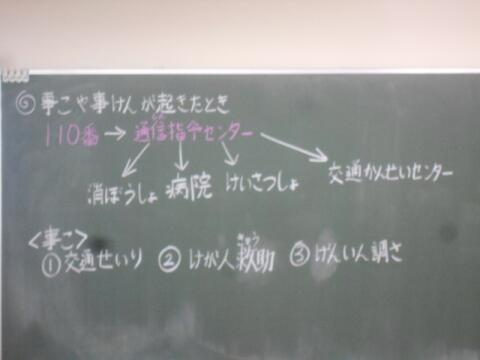 ◎事こや事けんが起きたとき
110番→通信指令センター
消ぼうしょ 病院 けいさつしょ 交通かんせいセンター
<事こ>
①交通せいり ②けが人救助 ③げんいん調さ